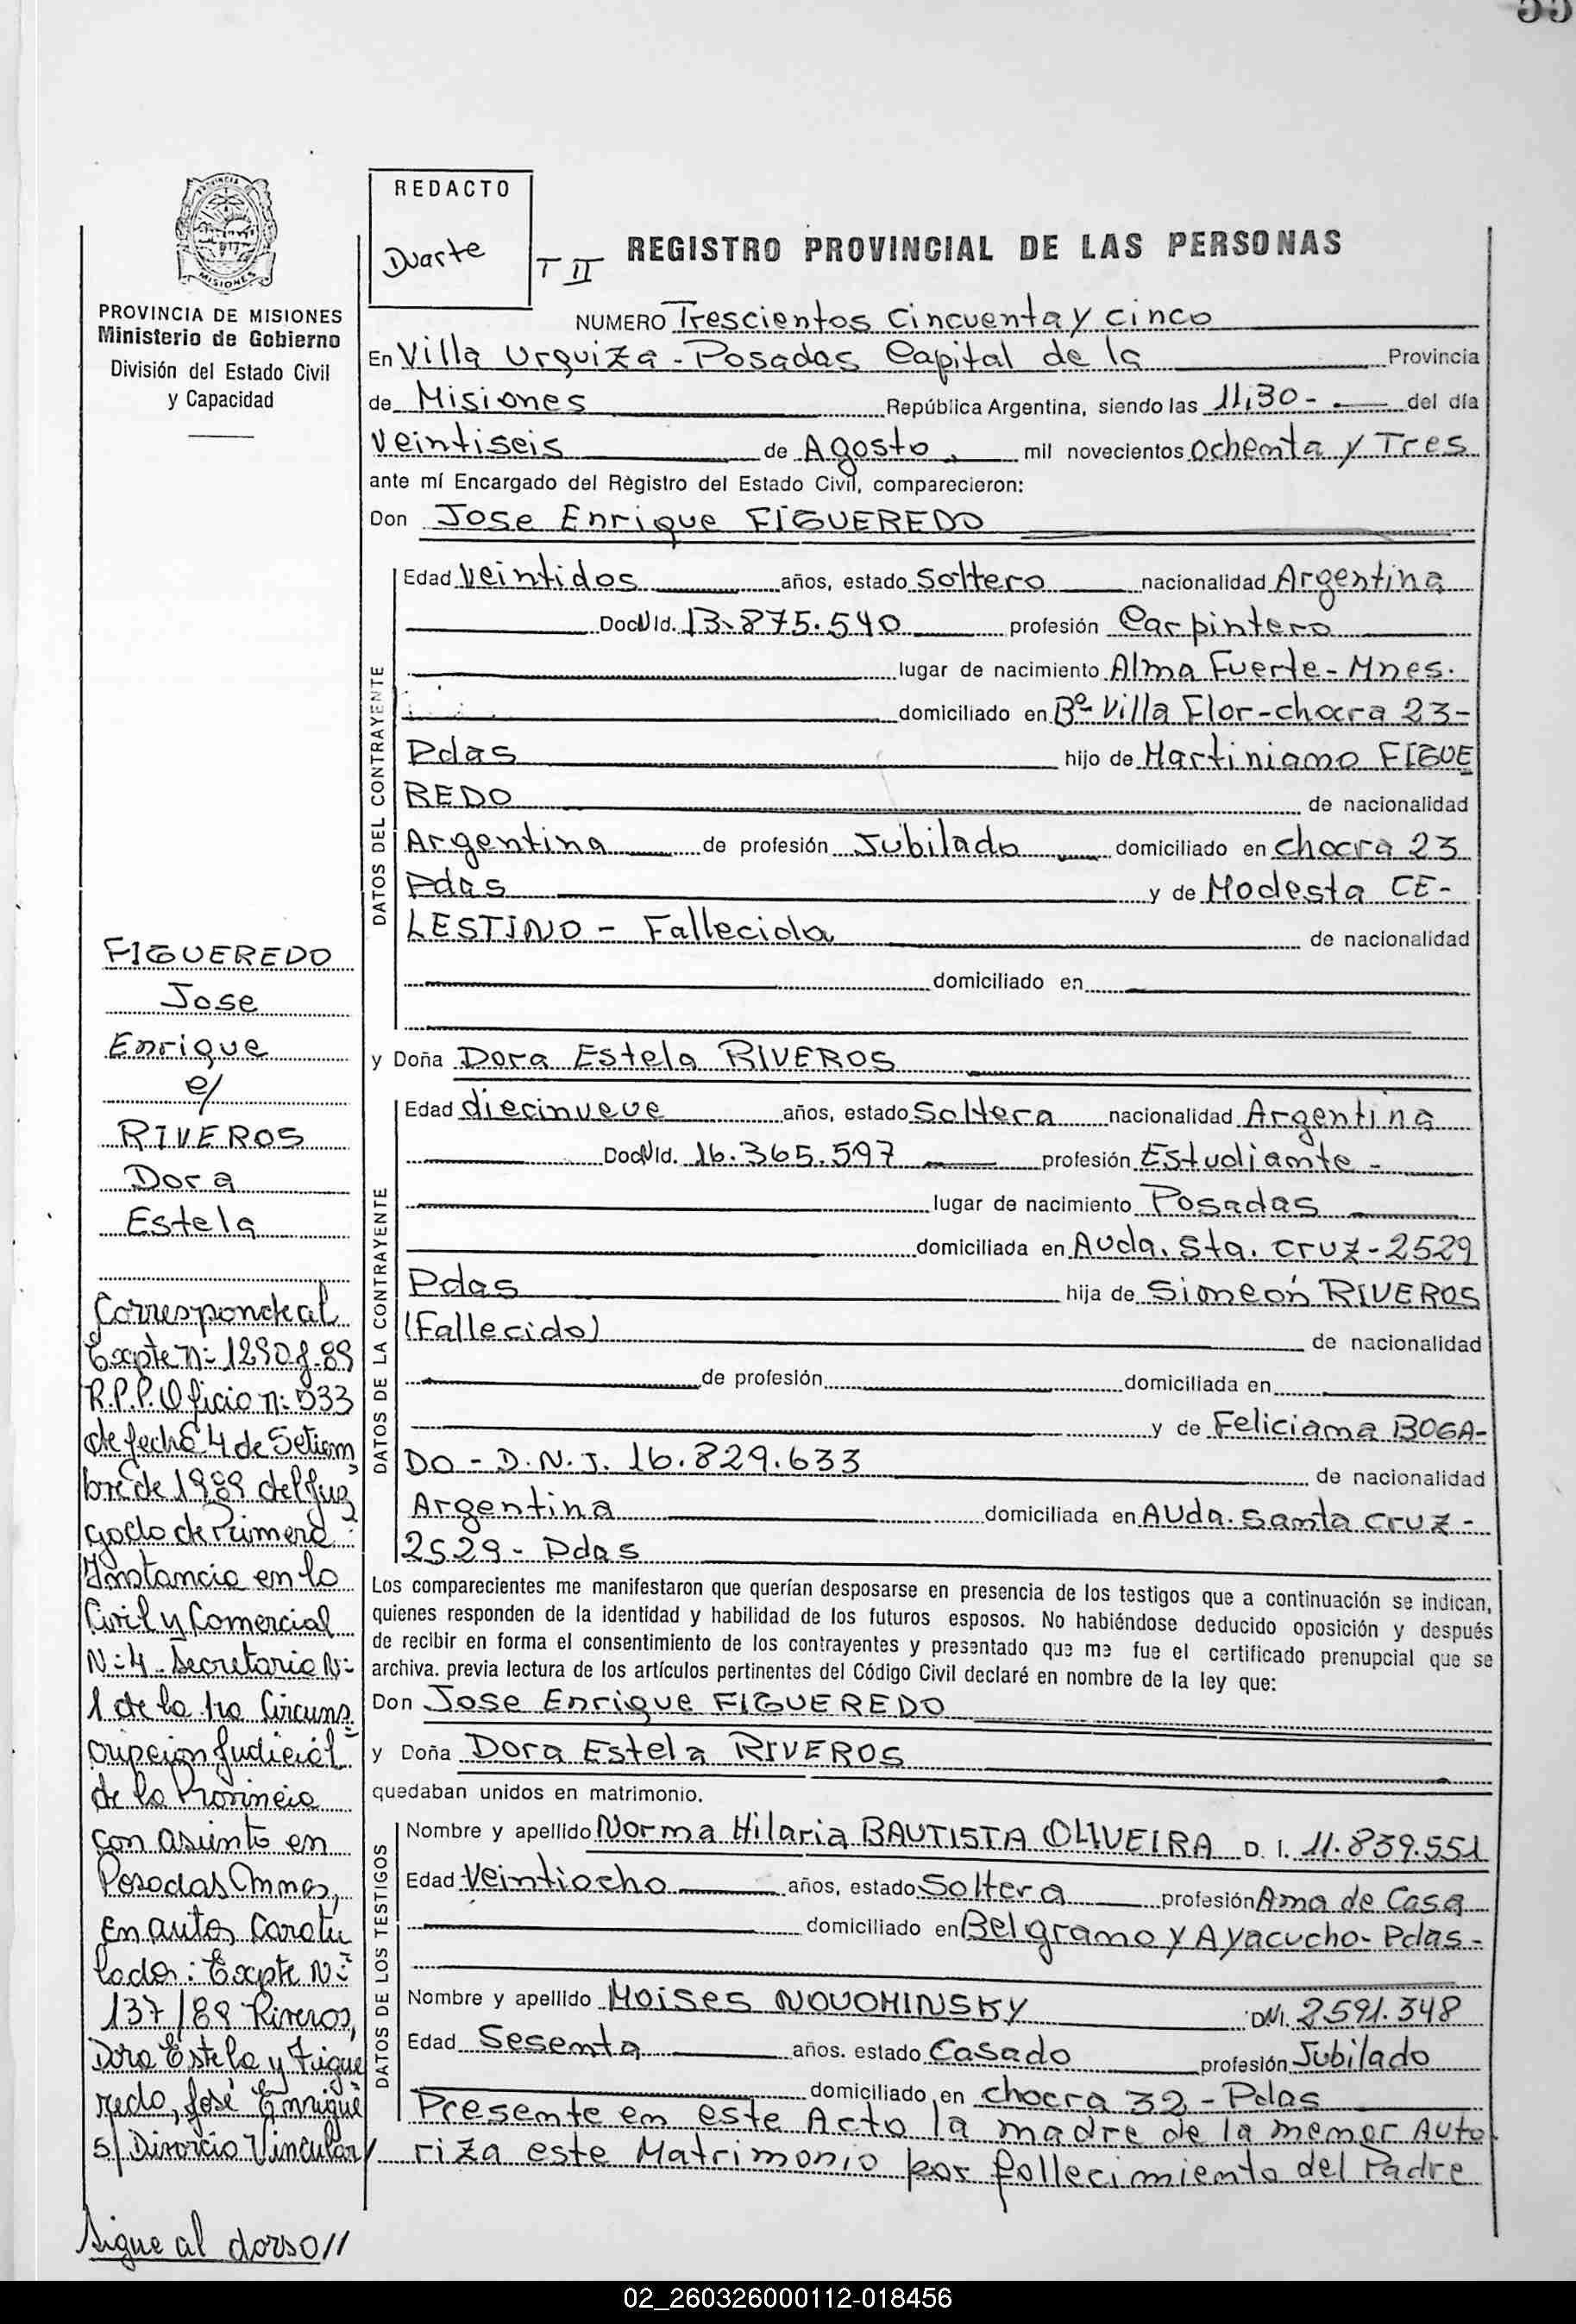 55
PROVINCIA
MISIONES
PROVINCIA DE MISIONES
Ministerio de Gobierno
División del Estado Civil
y Capacidad
REDACTO
Duarte
T II
REGISTRO PROVINCIAL DE LAS PERSONAS
NUMERO Trescientos Cincuenta y cinco
En Villa Urquiza - Posadas Capital de la Provincia
de Misiones República Argentina, siendo las 11,30 - del día
Veintiseis de Agosto, mil novecientos Ochenta y Tres
ante mí Encargado del Règistro del Estado Civil, comparecieron:
Don Jose Enrique FIGUEREDO
DATOS DEL CONTRAYENTE
Edad Veintidos años, estado Soltero nacionalidad Argentina
DocNId. 13.875.540 profesión Carpintero
lugar de nacimiento Alma Fuerte - Mnes.
domiciliado en Bº Villa Flor - chacra 23 -
Pdas hijo de Martiniano FIGUE
REDO de nacionalidad
Argentina de profesión Jubilado domiciliado en chacra 23
Pdas y de Modesta CE-
LESTINO - Fallecida de nacionalidad
domiciliado en
y Doña Dora Estela RIVEROS
DATOS DE LA CONTRAYENTE
Edad diecinueve años, estado Soltera nacionalidad Argentina
DocNId. 16.365.597 profesión Estudiante -
lugar de nacimiento Posadas
domiciliada en Avda. Sta. Cruz - 2529
Pdas hija de Simeón RIVEROS
(Fallecido) de nacionalidad
de profesión domiciliada en
y de Feliciana BOGA-
DO - D.N.I. 16.829.633 de nacionalidad
Argentina domiciliada en Avda. Santa Cruz -
2529 - Pdas
Los comparecientes me manifestaron que querían desposarse en presencia de los testigos que a continuación se indican,
quienes responden de la identidad y habilidad de los futuros esposos. No habiéndose deducido oposición y después
de recibir en forma el consentimiento de los contrayentes y presentado que me fue el certificado prenupcial que se
archiva. previa lectura de los artículos pertinentes del Código Civil declaré en nombre de la ley que:
Don Jose Enrique FIGUEREDO
y Doña Dora Estela RIVEROS
quedaban unidos en matrimonio.
DATOS DE LOS TESTIGOS
Nombre y apellido Norma Hilaria BAUTISTA OLIVEIRA D. I. 11.839.551
Edad Veintiocho años, estado Soltera profesión Ama de Casa
domiciliado en Belgrano y Ayacucho - Pdas -
Nombre y apellido Moises NOVOMINSKY DNI. 2591.348
Edad Sesenta años. estado Casado profesión Jubilado
domiciliado en chacra 32 - Pdas
Presente en este Acto la madre de la menor Auto
riza este Matrimonio por fallecimiento del Padre
FIGUEREDO
Jose
Enrique
c/
RIVEROS
Dora
Estela
Corresponde al
Expte n: 1290-f-89
R.P.P. Oficio n: 533
de fecha 4 de Setiem
bre de 1989 del Juz
gado de Primera
Instancia en lo
Civil y Comercial
N: 4 - Secretaria N:
1 de la 1ra Circuns
cripcion Judicial
de la Provincia
con asiento en
Posadas Mnes,
en autos caratu
lados: Expte N:
137/89 Riveros,
Dora Estela y Figue
redo, José Enrique
s/ Divorcio Vincular/
Sigue al dorso//
02_260326000112-018456